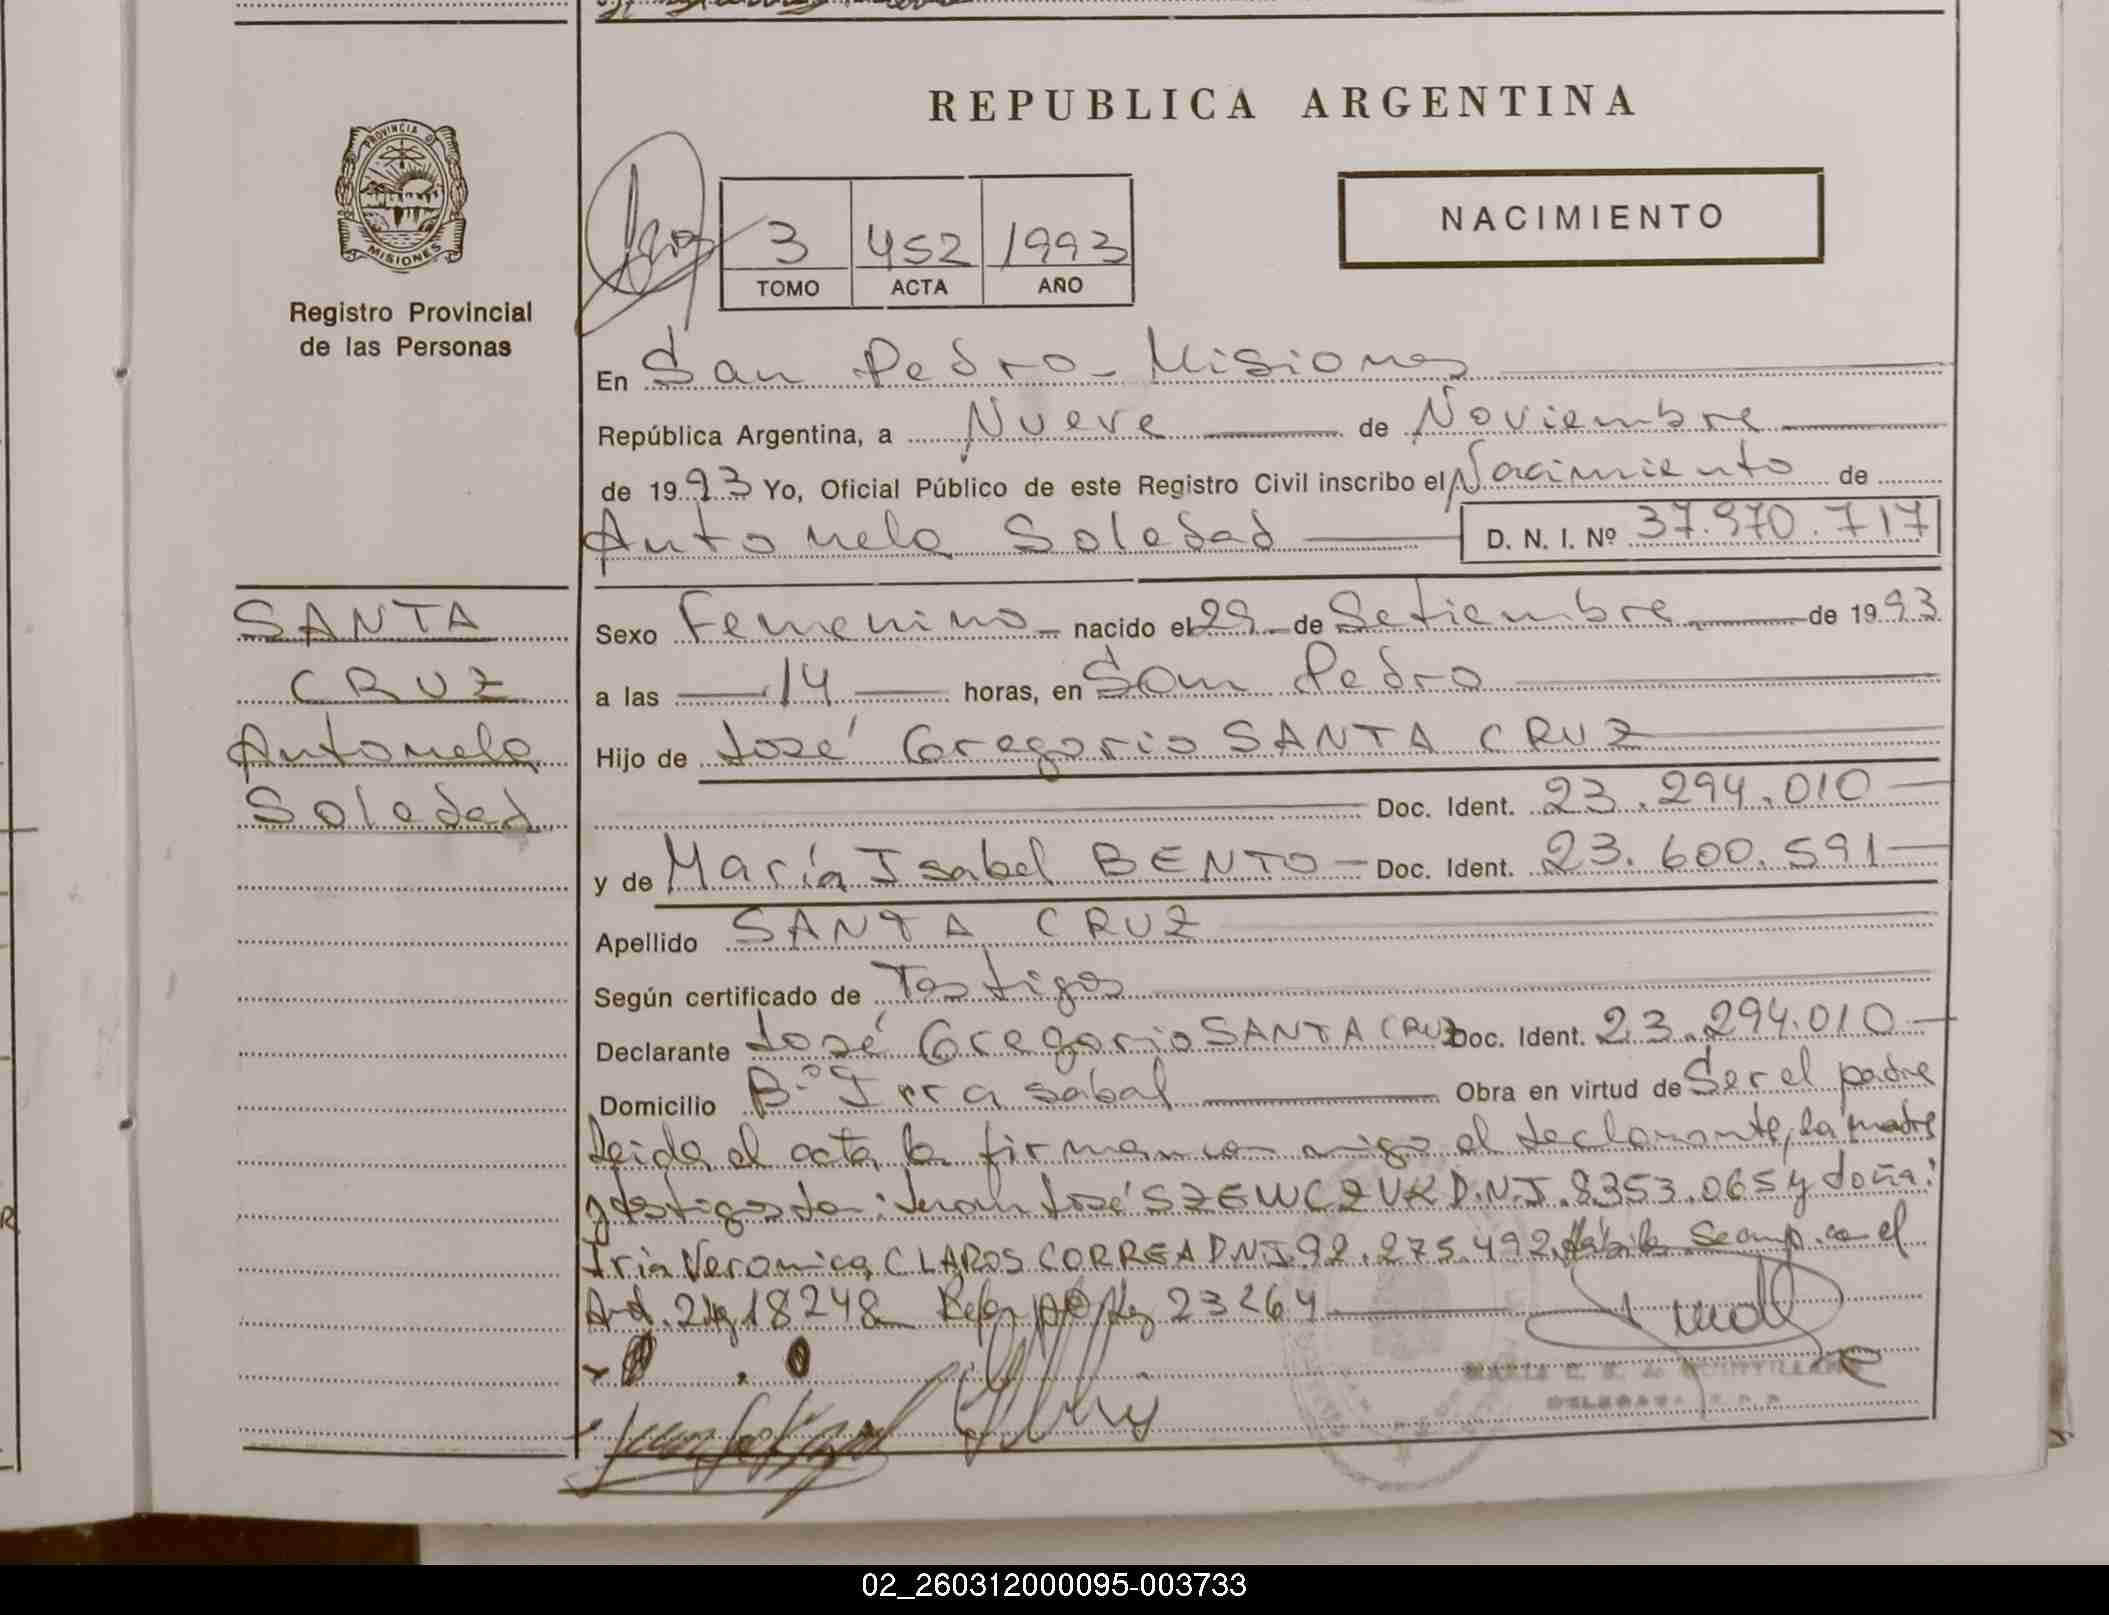 REPUBLICA ARGENTINA
PROVINCIA D
MISIONES
Registro Provincial
de las Personas
3 452 1993
TOMO ACTA AÑO
NACIMIENTO
En San Pedro - Misiones
República Argentina, a Nueve de Noviembre
de 1993 Yo, Oficial Público de este Registro Civil inscribo el Nacimiento de
Antonela Soledad D. N. I. Nº 37.970.717
SANTA
CRUZ
Antonela
Soledad
Sexo Femenino nacido el 29 de Setiembre de 1993
a las 14 horas, en San Pedro
Hijo de José Gregorio SANTA CRUZ
Doc. Ident. 23.294.010
y de María Isabel BENTO Doc. Ident. 23.600.591
Apellido SANTA CRUZ
Según certificado de Testigos
Declarante José Gregorio SANTA CRUZ Doc. Ident. 23.294.010
Domicilio Bº Irrasabal Obra en virtud de Ser el padre
Leida el acta la firman con migo el declarante, la madre
y testigos Juan José SZEWCZUK D.N.I. 8353.065 y doña:
Iria Veronica CLAROS CORREA D.N.I. 92.275.492 el
Art. 2 18248 23264
MARIA
02_260312000095-003733